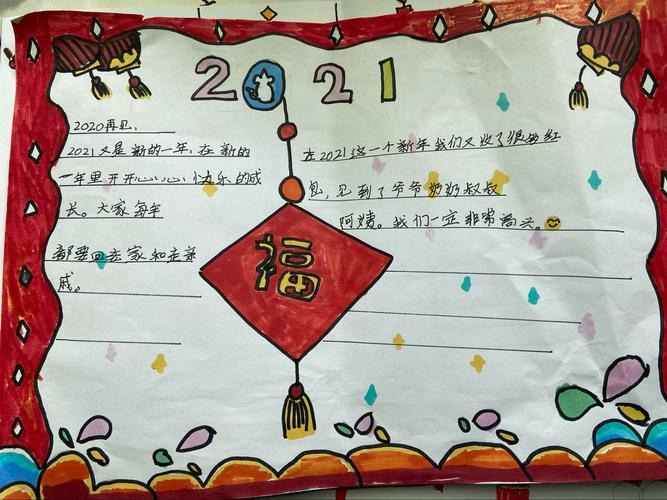 2021
2020再见，
2021又是新的一年，在新的
一年里开开心心，快乐的成
长。大家每年
都要回老家和走亲
戚。
在2021这一个新年我们又收了很多红
包，见到了爷爷奶奶叔叔
阿姨。我们一定非常高兴。
福